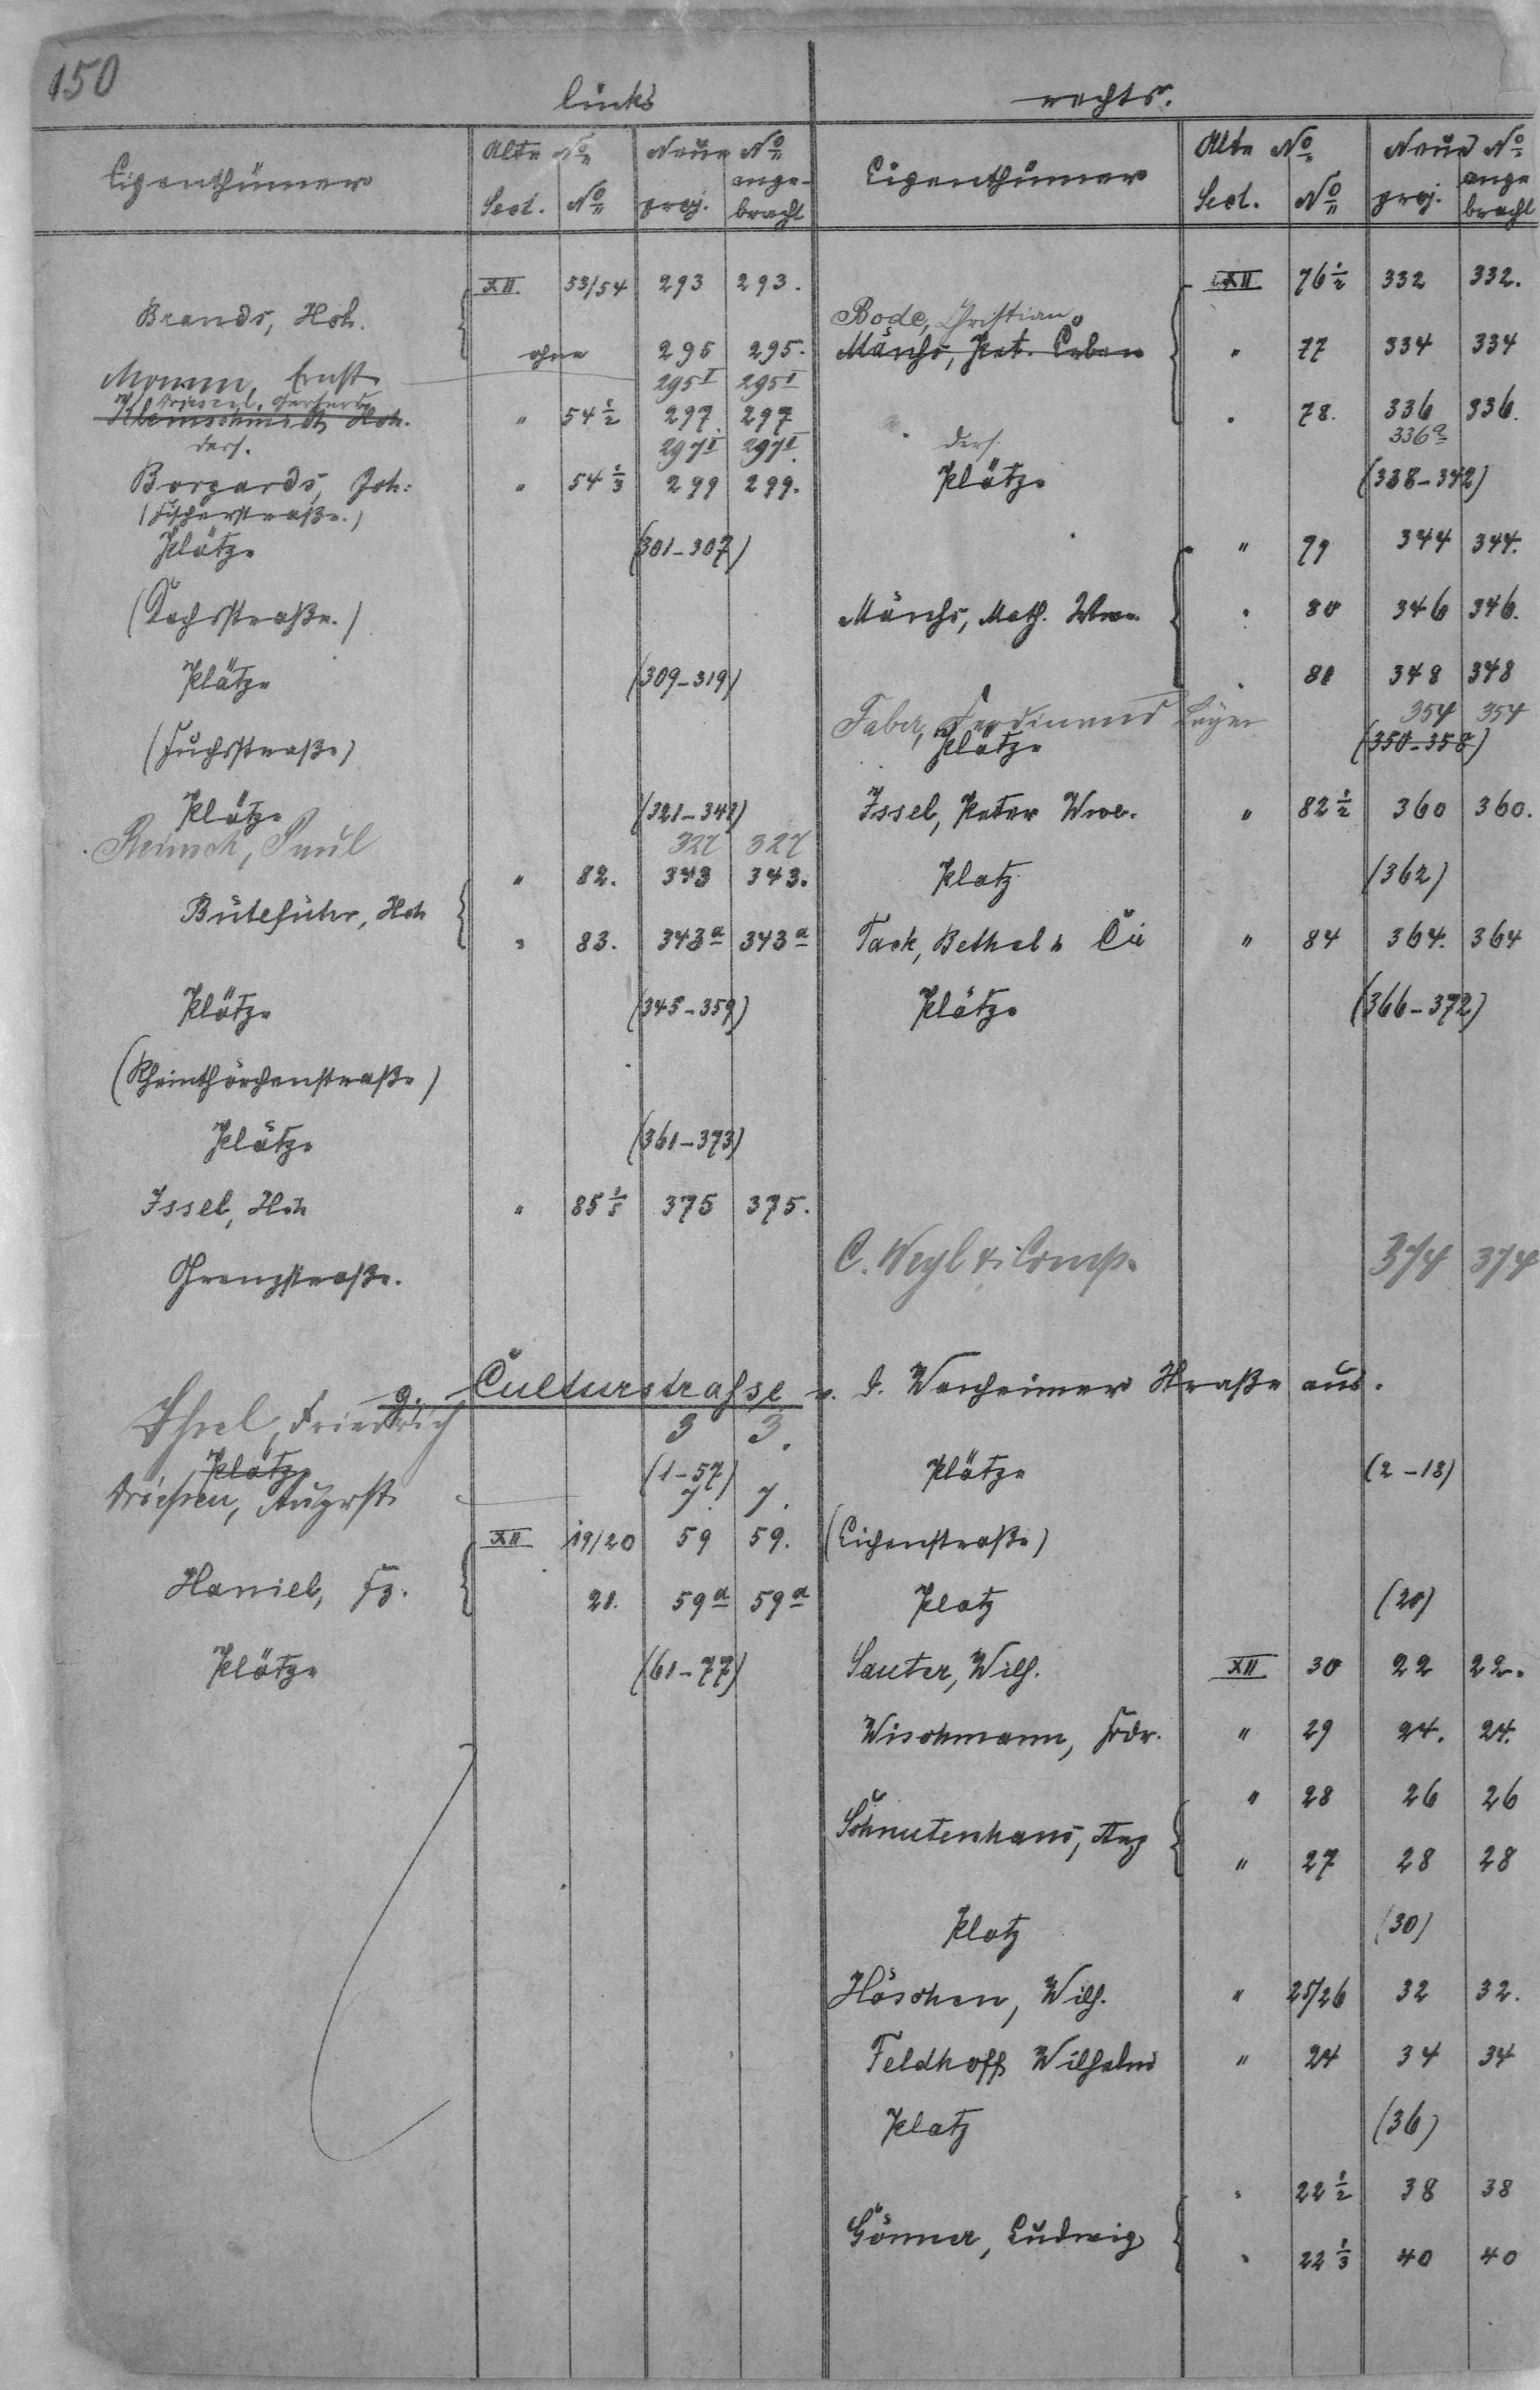 150
links
rechts.
Eigenthümer Alte No Neue No Eigenthümer Alte No Neue No
Sect. No proj. ange-bracht Sect. No proj. ange bracht
XII 53/54 293 293. XII 76 1/2 332 332.
Brands, Hch. Bode, Christian
ohne 295 295. Mänchs, Pet. Erben " 77 334 334
Momm, Ernst 295I 295I
Driessel, Gerhard
Kleinschmidt Hch. " 54 1/2 297 297 " 78. 336 336.
ders. 297I 297I. ders. 336a
Borgards, Joh: " 54 1/3 299 299. Plätze (338-342)
(Fischerstraße.)
Plätze (301-307) " 79 344 344.
(Dachsstraße.) Mänchs, Math. Wwe. " 80 346 346.
Plätze (309-319) " 81 348 348
Faber, Ferdinand 354 354
(Fuchsstraße) Plätze (350-358)
Plätze (321-341) Issel, Peter Wwe. " 82 1/2 360 360.
Reinsch, Paul 327 327
" 82. 343 343. Platz (362)
Büteführ, Hch
" 83. 343a 343a Tack, Bethel & Cie " 84 364. 364
Plätze (345-359) Plätze (366-372)
(Rheinthörchenstraße)
Plätze (361-373)
Issel, Hch " 85 1/5 375 375.
C. Weyl & Comp. 374 374
Grenzstraße.
9. Culturstrasse v. d. Wanheimer Straße aus.
Ihsel, Friedrich 3 3.
Plätze (1-57) Plätze (2-18)
Driessen, August 7. 7.
XII 19/20 59 59. (Eichenstraße)
Haniel, Fz. 21. 59a 59a Platz (20)
Plätze (61-77) Sauter, Wilh. XII 30 22 22.
Wischmann, Frdr. " 29 24. 24.
" 28 26 26
Schnutenhaus, Aug
" 27 28 28
Platz (30)
Höschen, Wilh. " 25/26 32 32.
Feldhoff Wilhelm " 24 34 34
Platz (36)
" 22 1/2 38 38
Gönner, Ludwig
" 22 1/3 40 40